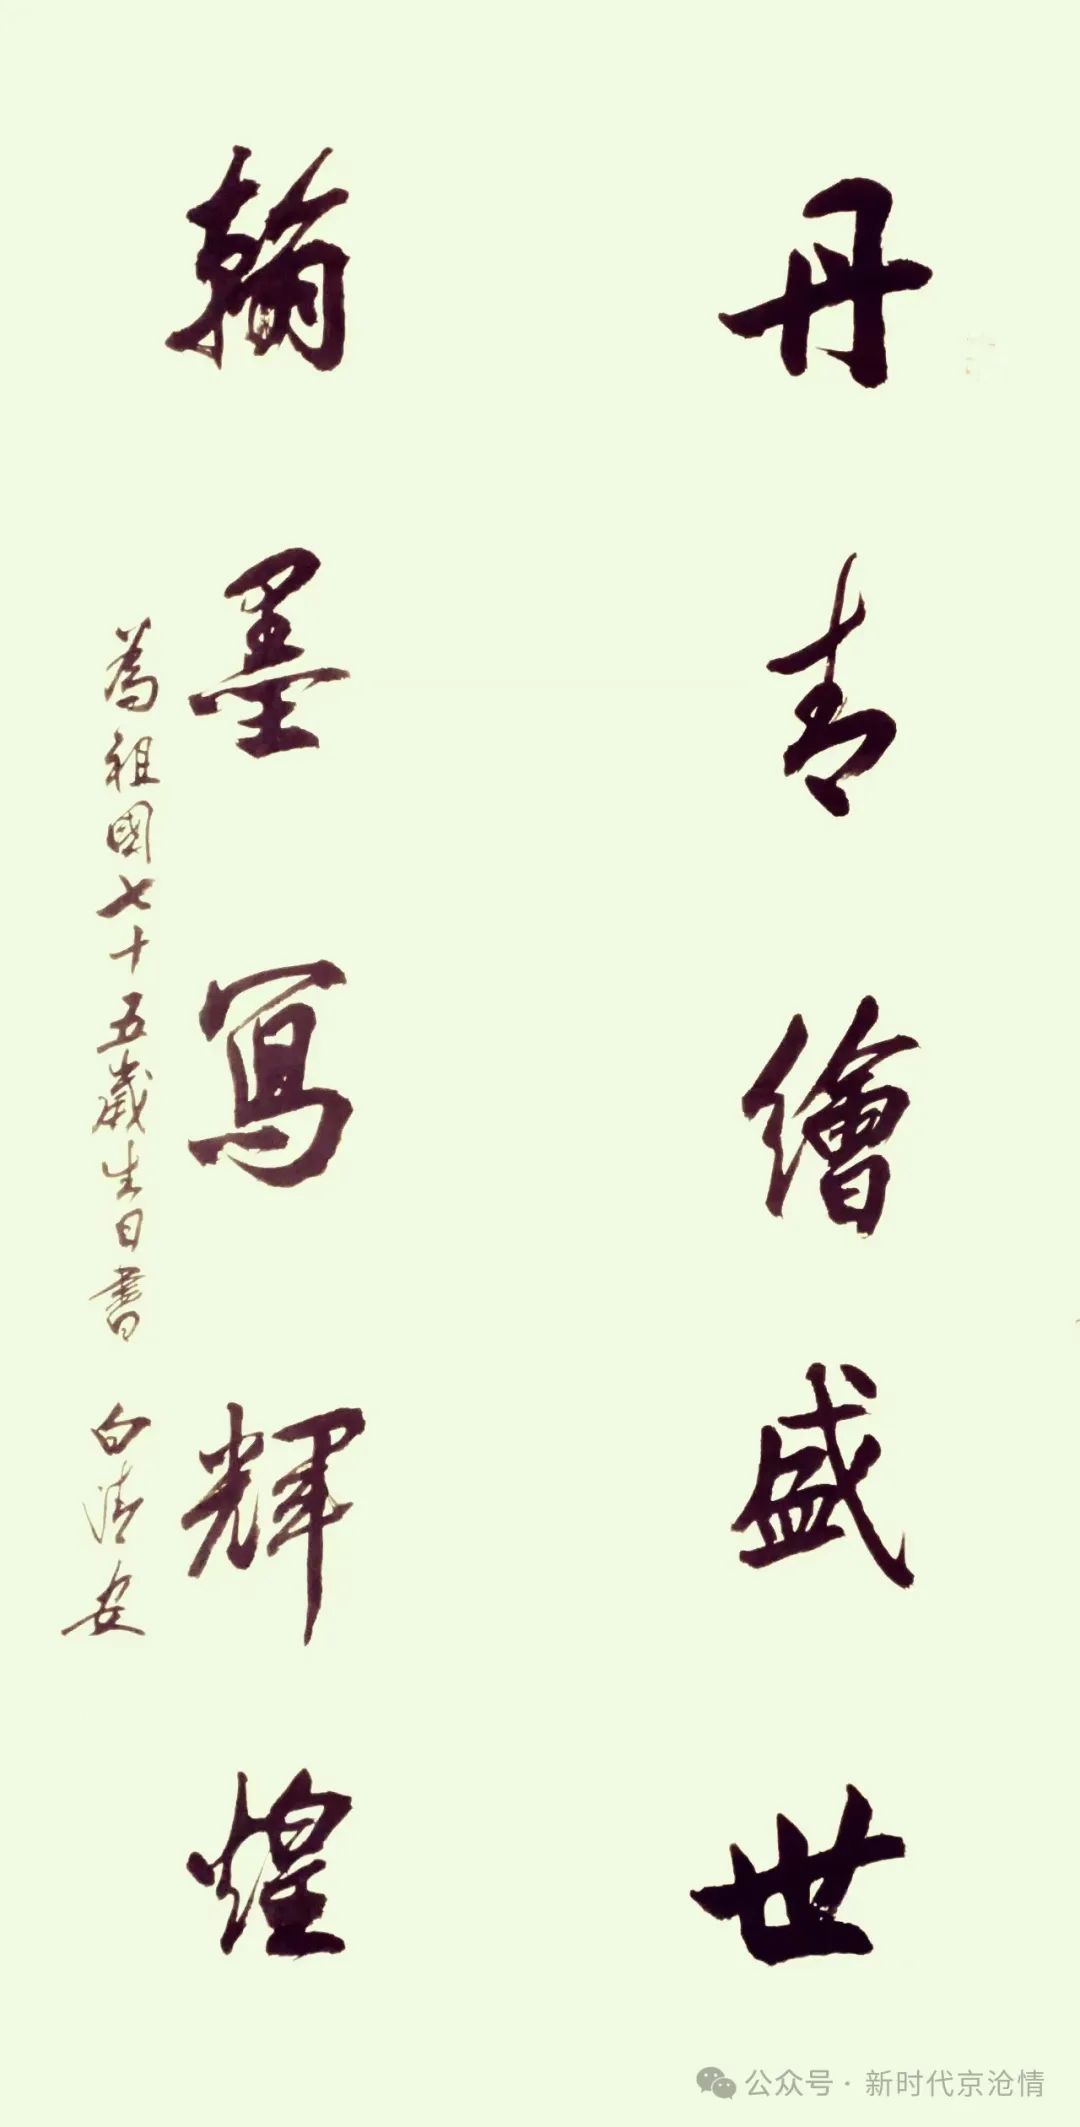 丹青繪盛世
翰墨寫輝煌
為祖國七十五歲生日書 白清安
公众号·新时代京沧情